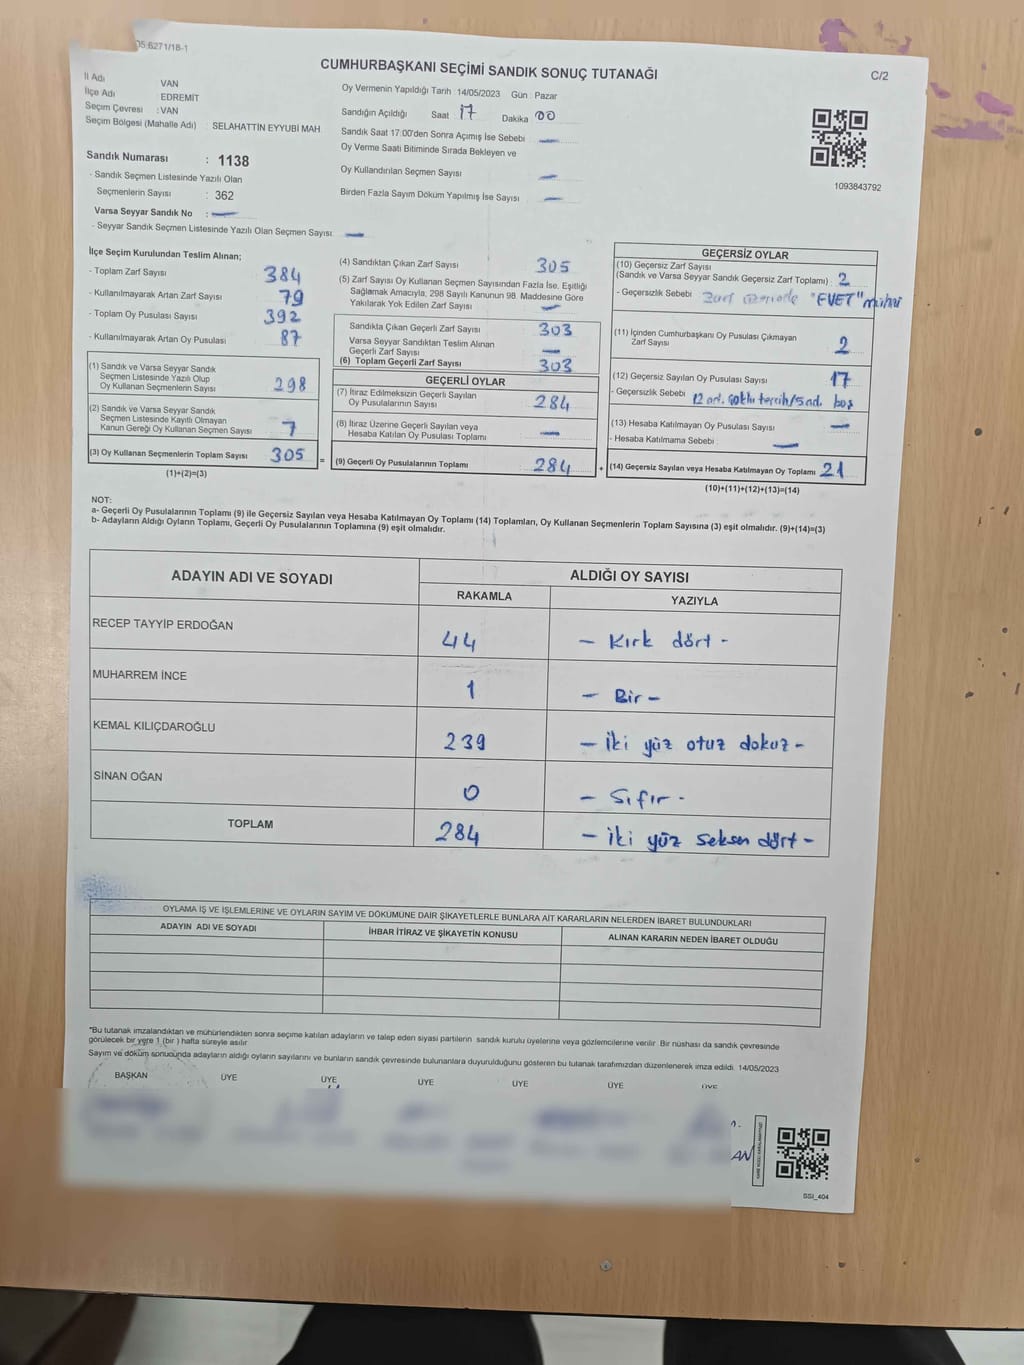 05:6271/18-1
CUMHURBAŞKANI SEÇİMİ SANDIK SONUÇ TUTANAĞI
C/2
İl Adı VAN
İlçe Adı : EDREMİT
Seçim Çevresi : VAN
Seçim Bölgesi (Mahalle Adı) : SELAHATTİN EYYUBİ MAH.
Sandık Numarası : 1138
- Sandık Seçmen Listesinde Yazılı Olan
Seçmenlerin Sayısı : 362
Varsa Seyyar Sandık No : —
- Seyyar Sandık Seçmen Listesinde Yazılı Olan Seçmen Sayısı: —
Oy Vermenin Yapıldığı Tarih : 14/05/2023 Gün : Pazar
Sandığın Açıldığı Saat 17 Dakika 00
Sandık Saat 17:00'den Sonra Açımış İse Sebebi —
Oy Verme Saati Bitiminde Sırada Bekleyen ve
Oy Kullandırılan Seçmen Sayısı —
Birden Fazla Sayım Döküm Yapılmış İse Sayısı —
1093843792
İlçe Seçim Kurulundan Teslim Alınan;
- Toplam Zarf Sayısı 384
- Kullanılmayarak Artan Zarf Sayısı 79
- Toplam Oy Pusulası Sayısı 392
- Kullanılmayarak Artan Oy Pusulası 87
(1) Sandık ve Varsa Seyyar Sandık
Seçmen Listesinde Yazılı Olup
Oy Kullanan Seçmenlerin Sayısı 298
(2) Sandık ve Varsa Seyyar Sandık
Seçmen Listesinde Kayıtlı Olmayan
Kanun Gereği Oy Kullanan Seçmen Sayısı 7
(3) Oy Kullanan Seçmenlerin Toplam Sayısı 305 =
(1)+(2)=(3)
(4) Sandıktan Çıkan Zarf Sayısı 305
(5) Zarf Sayısı Oy Kullanan Seçmen Sayısından Fazla İse, Eşitliği
Sağlamak Amacıyla, 298 Sayılı Kanunun 98. Maddesine Göre
Yakılarak Yok Edilen Zarf Sayısı —
Sandıkla Çıkan Geçerli Zarf Sayısı 303
Varsa Seyyar Sandıktan Teslim Alınan
Geçerli Zarf Sayısı —
(6) Toplam Geçerli Zarf Sayısı 303
GEÇERLİ OYLAR
(7) İtiraz Edilmeksizin Geçerli Sayılan
Oy Pusulalarının Sayısı 284
(8) İtiraz Üzerine Geçerli Sayılan veya
Hesaba Katılan Oy Pusulası Toplamı —
(9) Geçerli Oy Pusulalarının Toplamı 284 +
GEÇERSİZ OYLAR
(10) Geçersiz Zarf Sayısı
(Sandık ve Varsa Seyyar Sandık Geçersiz Zarf Toplamı) : 2
- Geçersizlik Sebebi : Zarf üzerinde "EVET" mührü
(11) İçinden Cumhurbaşkanı Oy Pusulası Çıkmayan
Zarf Sayısı 2
(12) Geçersiz Sayılan Oy Pusulası Sayısı 17
- Geçersizlik Sebebi : 12 ad. çoklu tercih/5 ad. boş
(13) Hesaba Katılmayan Oy Pusulası Sayısı —
- Hesaba Katılmama Sebebi : —
(14) Geçersiz Sayılan veya Hesaba Katılmayan Oy Toplamı 21
(10)+(11)+(12)+(13)=(14)
NOT:
a- Geçerli Oy Pusulalarının Toplamı (9) ile Geçersiz Sayılan veya Hesaba Katılmayan Oy Toplamı (14) Toplamları, Oy Kullanan Seçmenlerin Toplam Sayısına (3) eşit olmalıdır. (9)+(14)=(3)
b- Adayların Aldığı Oyların Toplamı, Geçerli Oy Pusulalarının Toplamına (9) eşit olmalıdır.
ADAYIN ADI VE SOYADI ALDIĞI OY SAYISI
RAKAMLA YAZIYLA
RECEP TAYYİP ERDOĞAN 44 – Kırk dört –
MUHARREM İNCE 1 – Bir –
KEMAL KILIÇDAROĞLU 239 – İki yüz otuz dokuz –
SİNAN OĞAN 0 – Sıfır –
TOPLAM 284 – İki yüz seksen dört –
OYLAMA İŞ VE İŞLEMLERİNE VE OYLARIN SAYIM VE DÖKÜMÜNE DAİR ŞİKAYETLERLE BUNLARA AİT KARARLARIN NELERDEN İBARET BULUNDUKLARI
ADAYIN ADI VE SOYADI İHBAR İTİRAZ VE ŞİKAYETİN KONUSU ALINAN KARARIN NEDEN İBARET OLDUĞU
*Bu tutanak imzalandıktan ve mühürlendikten sonra seçime katılan adayların ve talep eden siyasi partilerin sandık kurulu üyelerine veya gözlemcilerine verilir. Bir nüshası da sandık çevresinde
görülecek bir yere 1 (bir ) hafta süreyle asılır.
Sayım ve döküm sonucunda adayların aldığı oyların sayılarını ve bunların sandık çevresinde bulunanlara duyurulduğunu gösteren bu tutanak tarafımızdan düzenlenerek imza edildi. 14/05/2023
BAŞKAN ÜYE ÜYE ÜYE ÜYE ÜYE ÜYE
AN
SSI_404